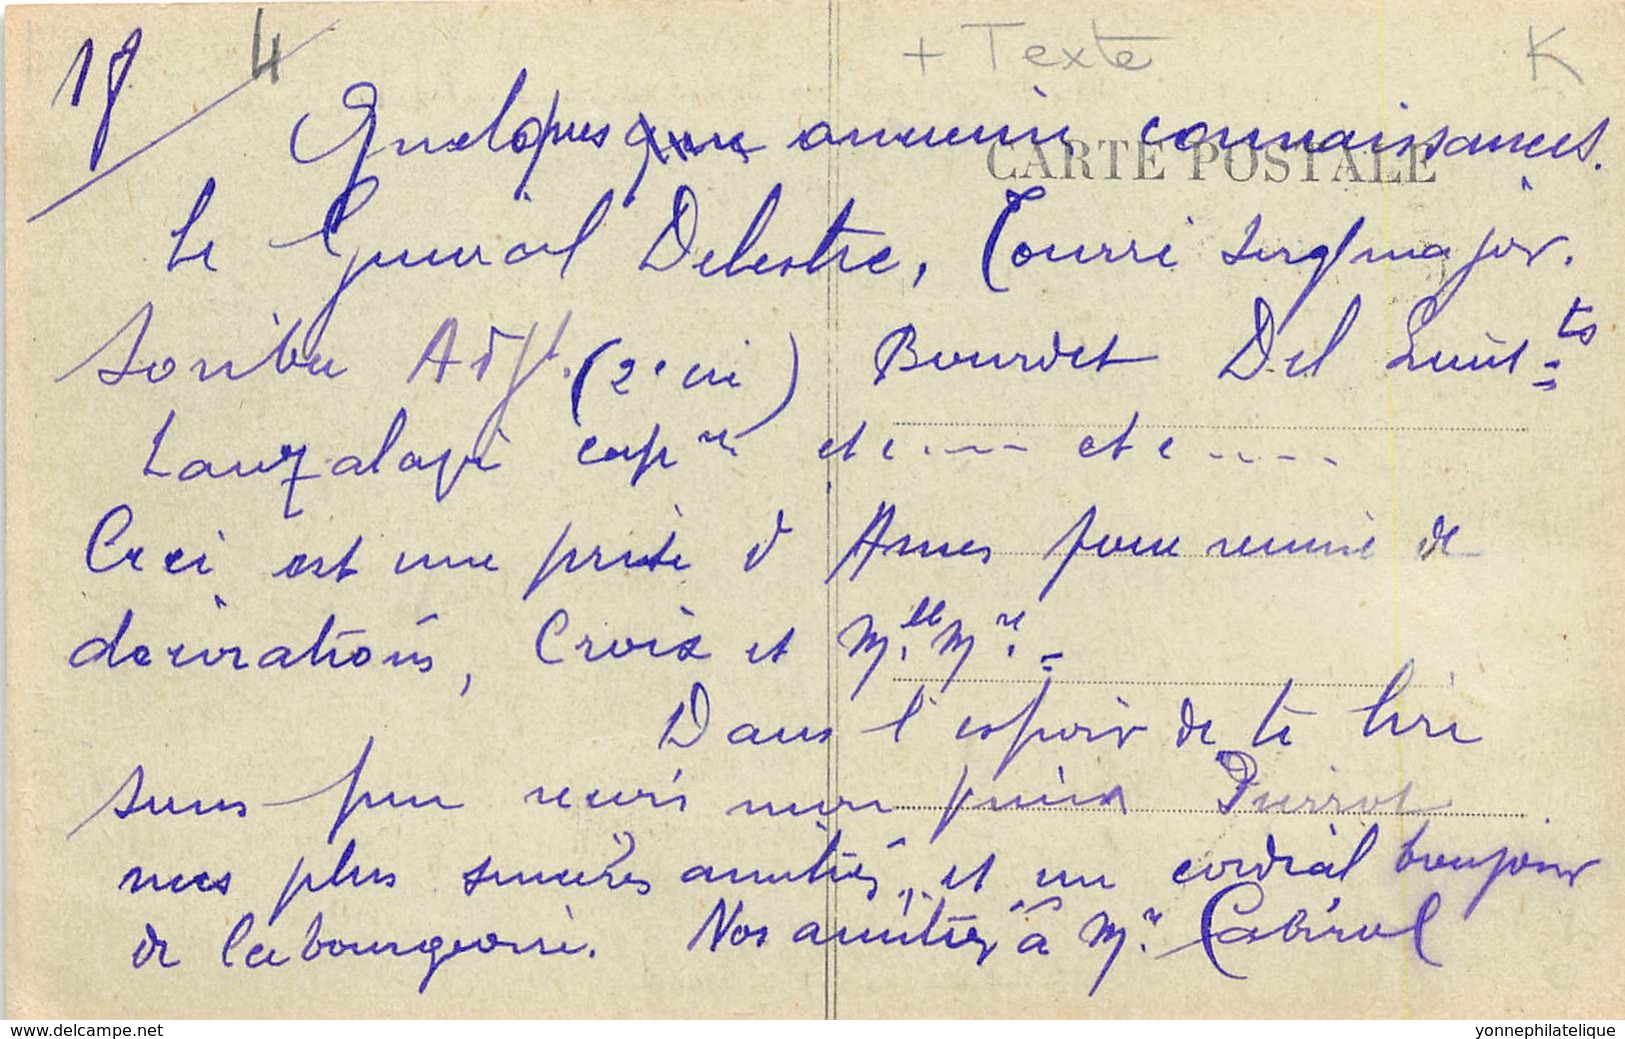 18
4
+ Texte
K
CARTE POSTALE
Quelques ancienne connaissances.
Le Général Delestre, Tourré sergt major.
Adjt. (2e cie) Bourdet Del Lieut-ts
cap re etc.---- etc.....
Ceci est une prise d'Armes pour remise de
décorations, Croix et Mlle Mre.=
Dans l'espoir de te lire
sous peu reçois mon Pierrot
nos plus sincères amitiés, et un cordial bonjour
de la bourgeoise. Nos amitiés à Mr Cabirol
www.delcampe.net
yonnephilatelique